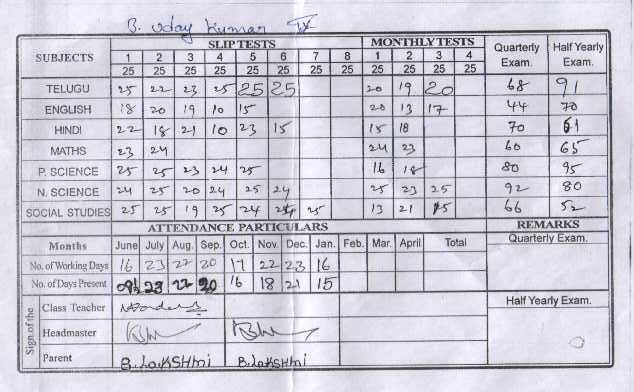 B. Uday Kumar IX
SUBJECTS SLIP TESTS MONTHLY TESTS Quarterly Exam. Half Yearly Exam.
1 2 3 4 5 6 7 8 1 2 3 4
25 25 25 25 25 25 25 25 25 25 25 25
TELUGU 25 22 23 25 25 25 20 19 20 68 91
ENGLISH 18 20 19 10 15 20 13 17 44 70
HINDI 22 18 21 10 23 15 15 18 70 61
MATHS 23 24 24 23 60 65
P. SCIENCE 25 25 23 24 25 16 18 80 95
N. SCIENCE 24 25 20 24 25 24 25 23 25 92 80
SOCIAL STUDIES 25 25 19 25 24 25 13 21 15 66 52
ATTENDANCE PARTICULARS REMARKS
Months June July Aug. Sep. Oct. Nov. Dec. Jan. Feb. Mar. April Total Quarterly Exam.
No. of Working Days 16 23 22 20 17 22 23 16
No. of Days Present 23 22 20 16 18 21 15
Sign of the Class Teacher Half Yearly Exam.
Headmaster
Parent B. LAKSHmi B. LAKSHmi